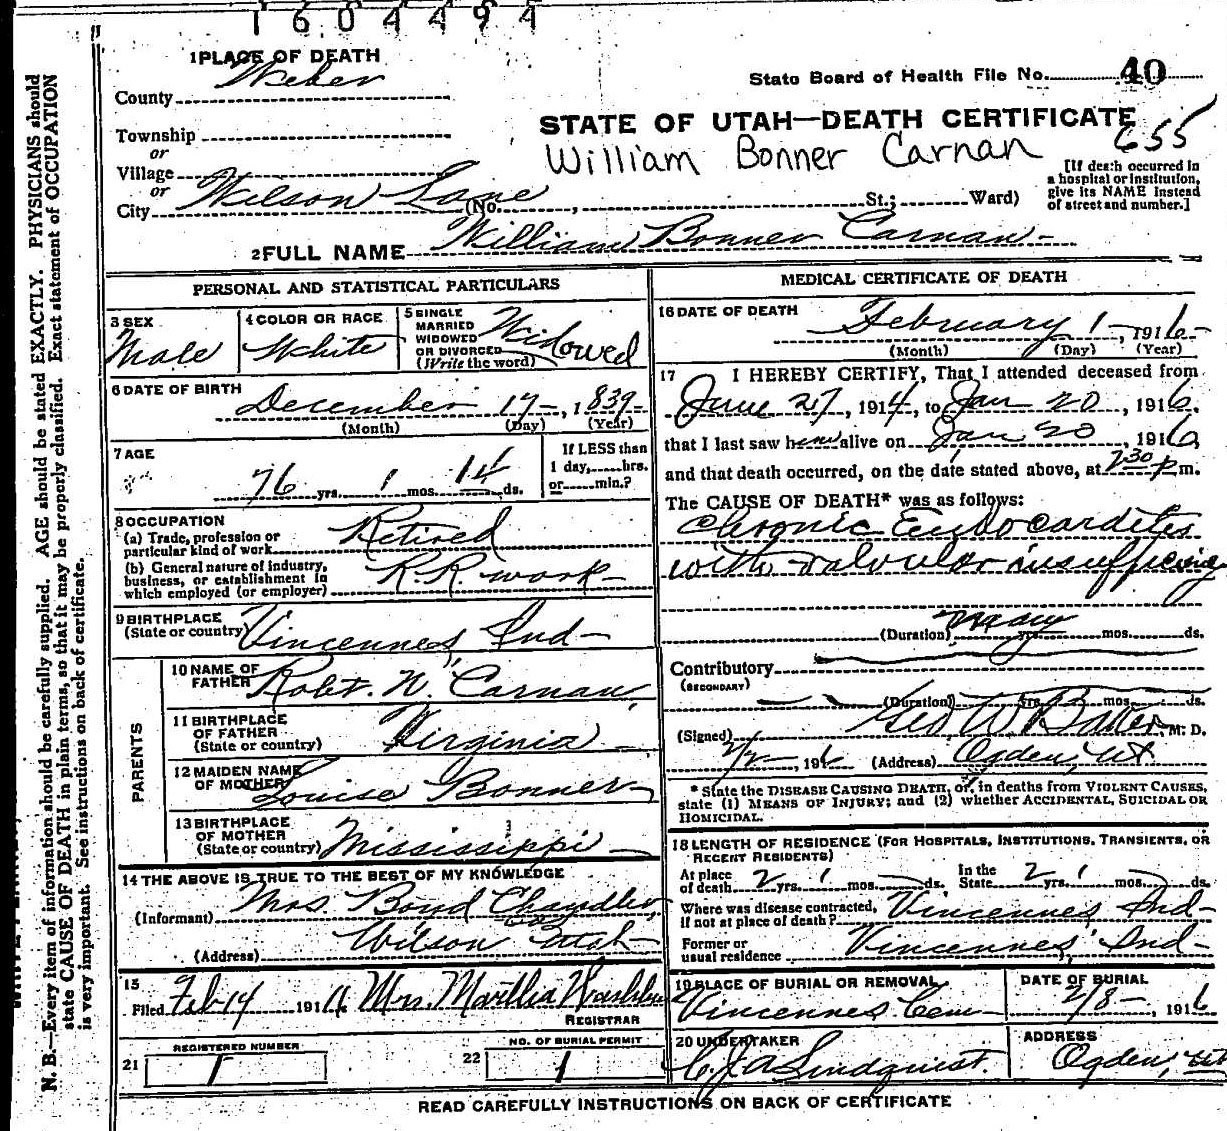 1604494
1 PLACE OF DEATH
Weber
County
State Board of Health File No. 40
STATE OF UTAH—DEATH CERTIFICATE
655
William Bonner Carnan
Township
or
Village
or
City Wilson Lane (No. , St.; Ward)
[If death occurred in
a hospital or institution,
give its NAME instead
of street and number.]
2 FULL NAME William Bonner Carnan
PERSONAL AND STATISTICAL PARTICULARS
3 SEX
Male
4 COLOR OR RACE
White
5 SINGLE
MARRIED
WIDOWED
OR DIVORCED
(Write the word)
Widowed
6 DATE OF BIRTH
December 17 , 1839
(Month) (Day) (Year)
7 AGE
76 yrs. 1 mos. 14 ds.
If LESS than
1 day, hrs.
or min.?
8 OCCUPATION
(a) Trade, profession or
particular kind of work
Retired
(b) General nature of industry,
business, or establishment in
which employed (or employer)
R.R. work
9 BIRTHPLACE
(State or country)
Vincennes, Ind
PARENTS
10 NAME OF
FATHER
Robt. N. Carnan
11 BIRTHPLACE
OF FATHER
(State or country)
Virginia
12 MAIDEN NAME
OF MOTHER
Louise Bonner
13 BIRTHPLACE
OF MOTHER
(State or country)
Mississippi
14 THE ABOVE IS TRUE TO THE BEST OF MY KNOWLEDGE
(Informant) Mrs. Bond Chandler
(Address) Wilson Utah
15
Filed Feb 14 1916 Mrs. Martha
REGISTRAR
21 REGISTERED NUMBER
1
22 NO. OF BURIAL PERMIT
1
MEDICAL CERTIFICATE OF DEATH
16 DATE OF DEATH
February 1 , 1916
(Month) (Day) (Year)
17 I HEREBY CERTIFY, That I attended deceased from
June 27, 1914, to Jan 20, 1916,
that I last saw him alive on Jan 20, 1916,
and that death occurred, on the date stated above, at 7 30 p m.
The CAUSE OF DEATH* was as follows:
Chronic Endocarditis
with valvular insufficiency
(Duration) many yrs. mos. ds.
Contributory
(SECONDARY)
(Duration) yrs. mos. ds.
(Signed) Geo W. Baker, M. D.
2/2, 1916 (Address) Ogden, Ut
* State the DISEASE CAUSING DEATH, or, in deaths from VIOLENT CAUSES,
state (1) MEANS OF INJURY; and (2) whether ACCIDENTAL, SUICIDAL OR
HOMICIDAL.
18 LENGTH OF RESIDENCE (FOR HOSPITALS, INSTITUTIONS, TRANSIENTS, OR
RECENT RESIDENTS)
At place
of death 2 yrs. 1 mos. ds.
In the
State 2 yrs. 1 mos. ds.
Where was disease contracted,
if not at place of death? Vincennes, Ind
Former or
usual residence Vincennes, Ind
19 PLACE OF BURIAL OR REMOVAL
Vincennes Cem
DATE OF BURIAL
2/8 , 1916
20 UNDERTAKER
C.J.A Lindquist.
ADDRESS
Ogden, Ut
READ CAREFULLY INSTRUCTIONS ON BACK OF CERTIFICATE
N. B.—Every item of information should be carefully supplied. AGE should be stated EXACTLY. PHYSICIANS should
state CAUSE OF DEATH in plain terms, so that it may be properly classified. Exact statement of OCCUPATION
is very important. See instructions on back of certificate.